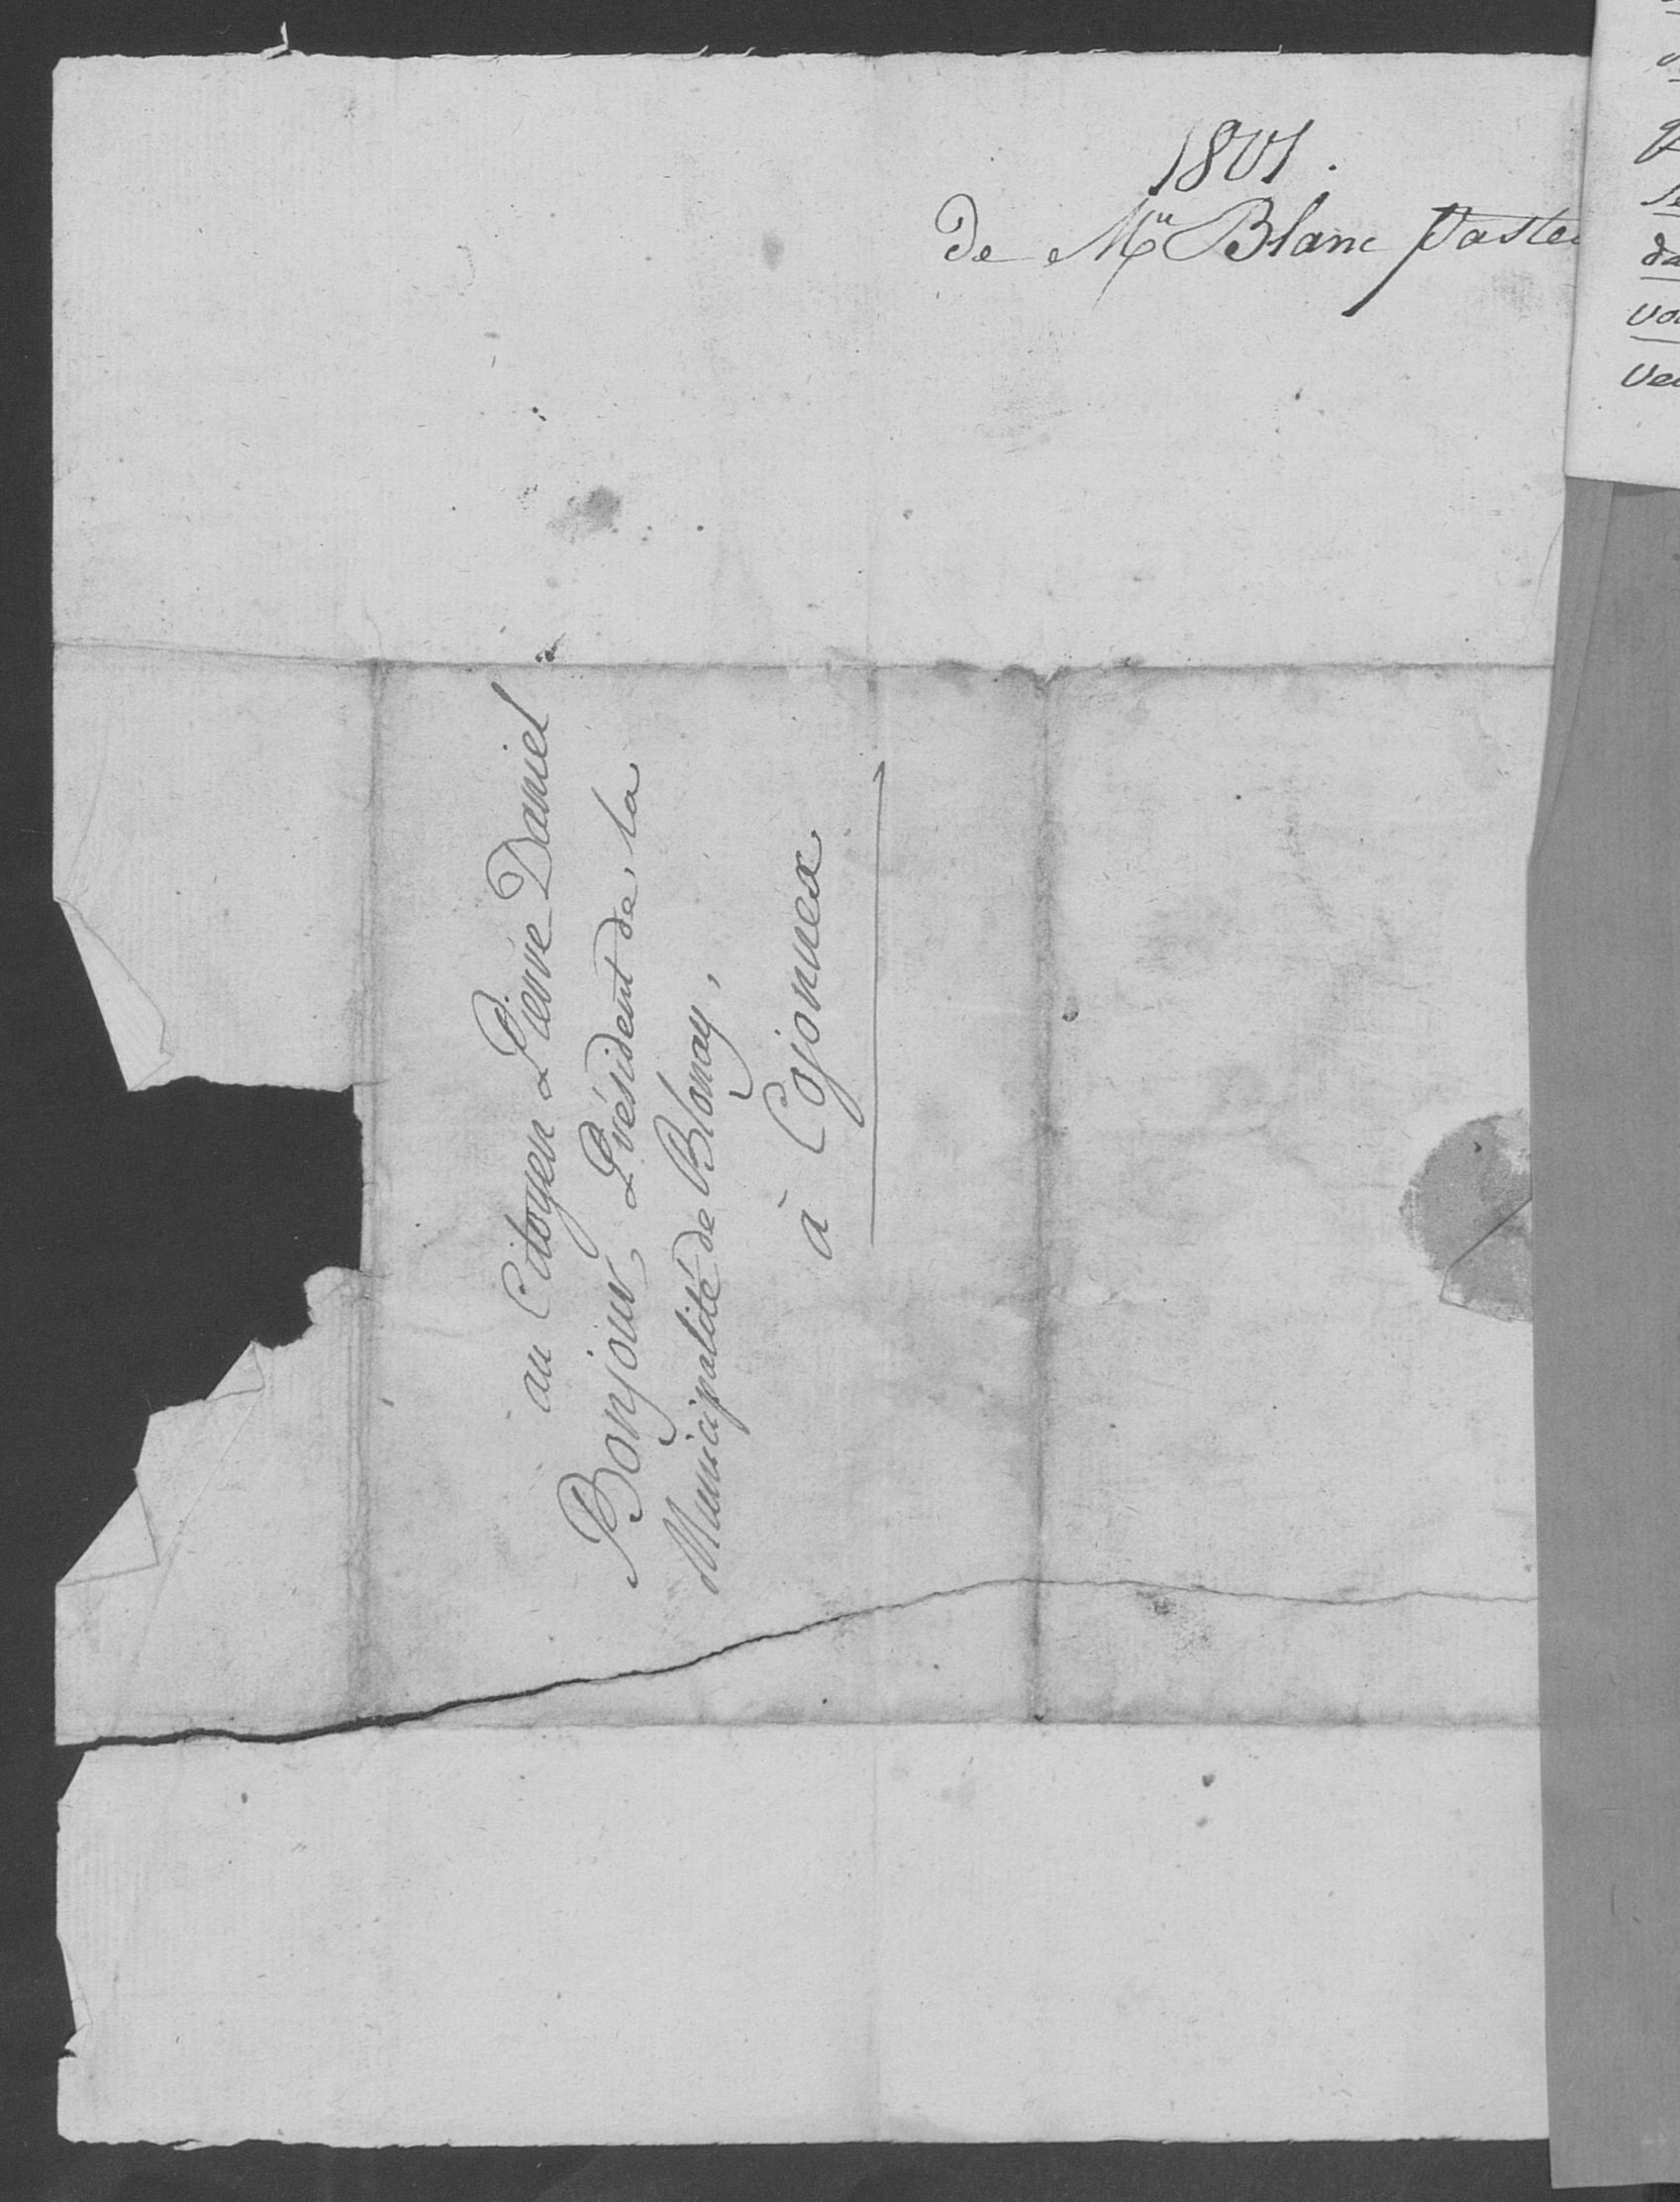 1801.
De Mr Blanc Paste
au Citoyen Pierre Daniel
Bonjour, Président de la
Municipalité de Blonay,
à Cojonnex